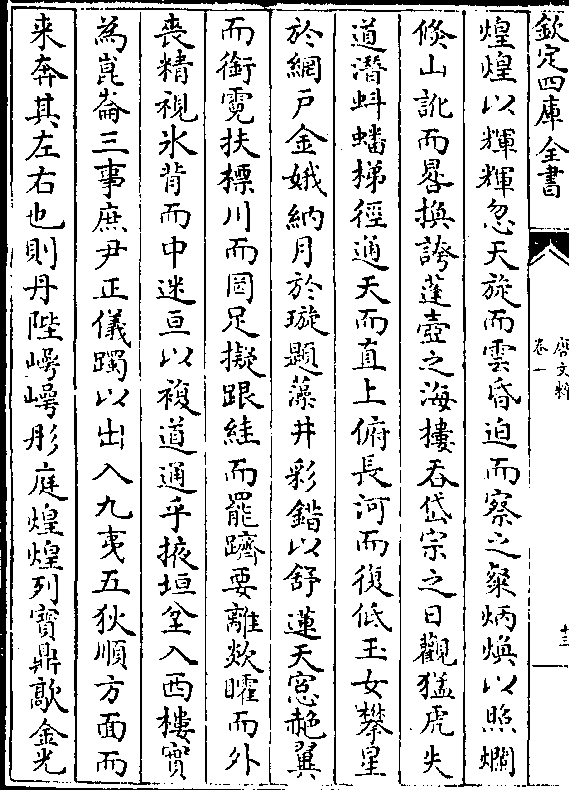 欽定四庫全書
唐文粹
卷一
十三
煌煌以輝輝忽天旋而雲昏迫而察之粲炳煥以照爛
倏山訛而晷換誇蓬壺之海樓吞岱宗之日觀猛虎失
道潛虯蟠梯徑通天而直上俯長河而復低玉女攀星
於網戶金娥納月於璇題藻井彩鍇以舒蓮天窓赩翼
而銜霓扶標川而罔足擬跟絓而罷躋要離欻矐而外
喪精視氷背而中迷亘以複道通乎掖垣坌入西樓實
為崑崙三事庶尹正儀躅以出入九夷五狄順方面而
来奔其左右也則丹陛崿崿彤庭煌煌列寶鼎敵金光